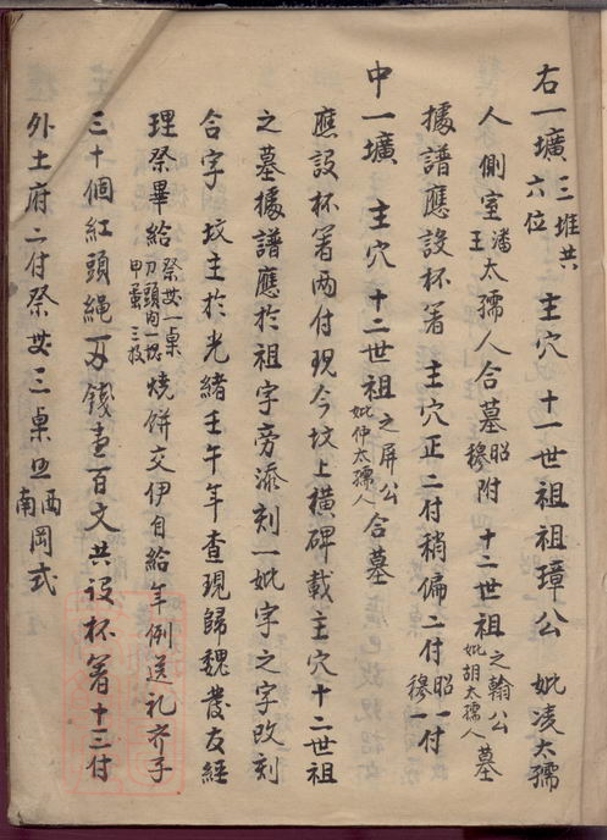 右一壙三堆共六位 主穴 十一世祖祖璋公 妣凌大孺
人側室潘王太孺人合墓昭穆附 十二世祖之翰公妣胡太孺人墓
據譜應設杯箸 主穴正二付稍偏二付昭一穆一付
中一壙 主穴 十二世祖之屏公妣仲太孺人合墓
應設杯箸两付現今坟上横碑載主穴十二世祖
之墓據譜應於祖字旁添刻一妣字之字改刻
合字 坟主於光緒壬午年查現歸魏發友經
理祭畢給祭一桌刀頭肉一塊蛋三枚燒餅交伊自給年例送礼齐子
三十個紅頭繩錢壹百文共設杯箸十三付
外土府二付祭三桌西南岡式